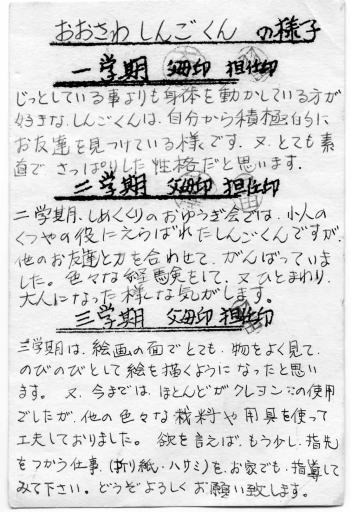 おおさわ しんごくん の様子
一学期 父母印 担任印
じっとしている事よりも身体を動かしている方が
好きな、しんごくんは、自分から積極的に
お友達を見つけている様です。又、とても素
直で さっぱりした性格だと思います。
二学期 父母印 担任印
二学期、しめくくりのおゆうぎ会では、小人の
くつやの役にえらばれたしんごくんですが、
他のお友達と力を合わせて、がんばっていま
した。色々な経験をして、又 ひとまわり、
大人になった様な気がします。
三学期 父母印 担任印
三学期は、絵画の面でとても、物をよく見て、
のびのびとして絵を描くようになったと思い
ます。又、今までは、ほとんどがクレヨンの使用
でしたが、他の色々な材料や用具を使って
工夫しておりました。欲を言えば、もう少し、指先
をつかう仕事、(折り紙・ハサミ)を、お家でも、指導して
みて下さい。どうぞよろしくお願い致します。